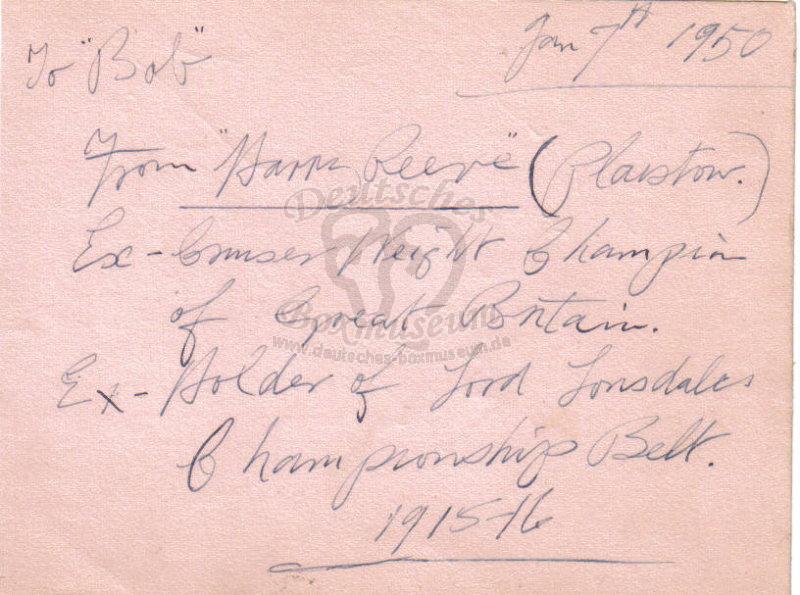 To "Bob"
Jan 7th 1950
From "Harry Reeve" (Plaistow.)
Deutsches
Ex-Cruiser Weight Champion
of Great Britain.
Boxmuseum
www.deutsches-boxmuseum.de
Ex-Holder of Lord Lonsdales
Championships Belt.
1915-16